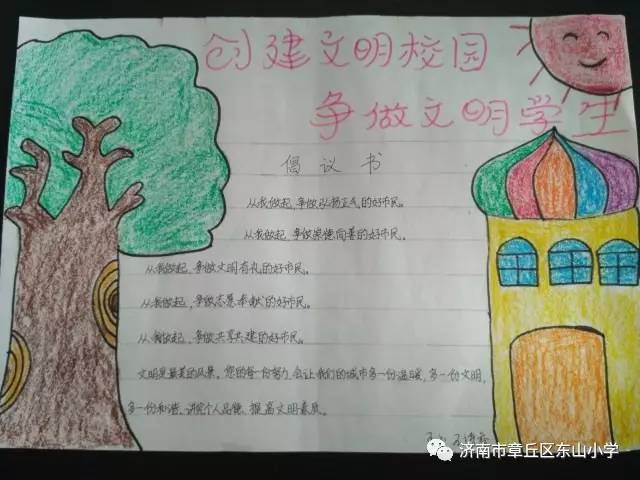 创建文明校园
争做文明学生
倡议书
从我做起,争做弘扬正气的好市民。
从我做起,争做崇德向善的好市民。
从我做起,争做文明有礼的好市民。
从我做起,争做志愿奉献的好市民。
从我做起,争做共享共建的好市民。
文明是最美的风景。您的每份努力,会让我们的城市多一份温暖,多一份文明,
多一份和谐。讲究个人品德、提高文明素质。
济南市章丘区东山小学